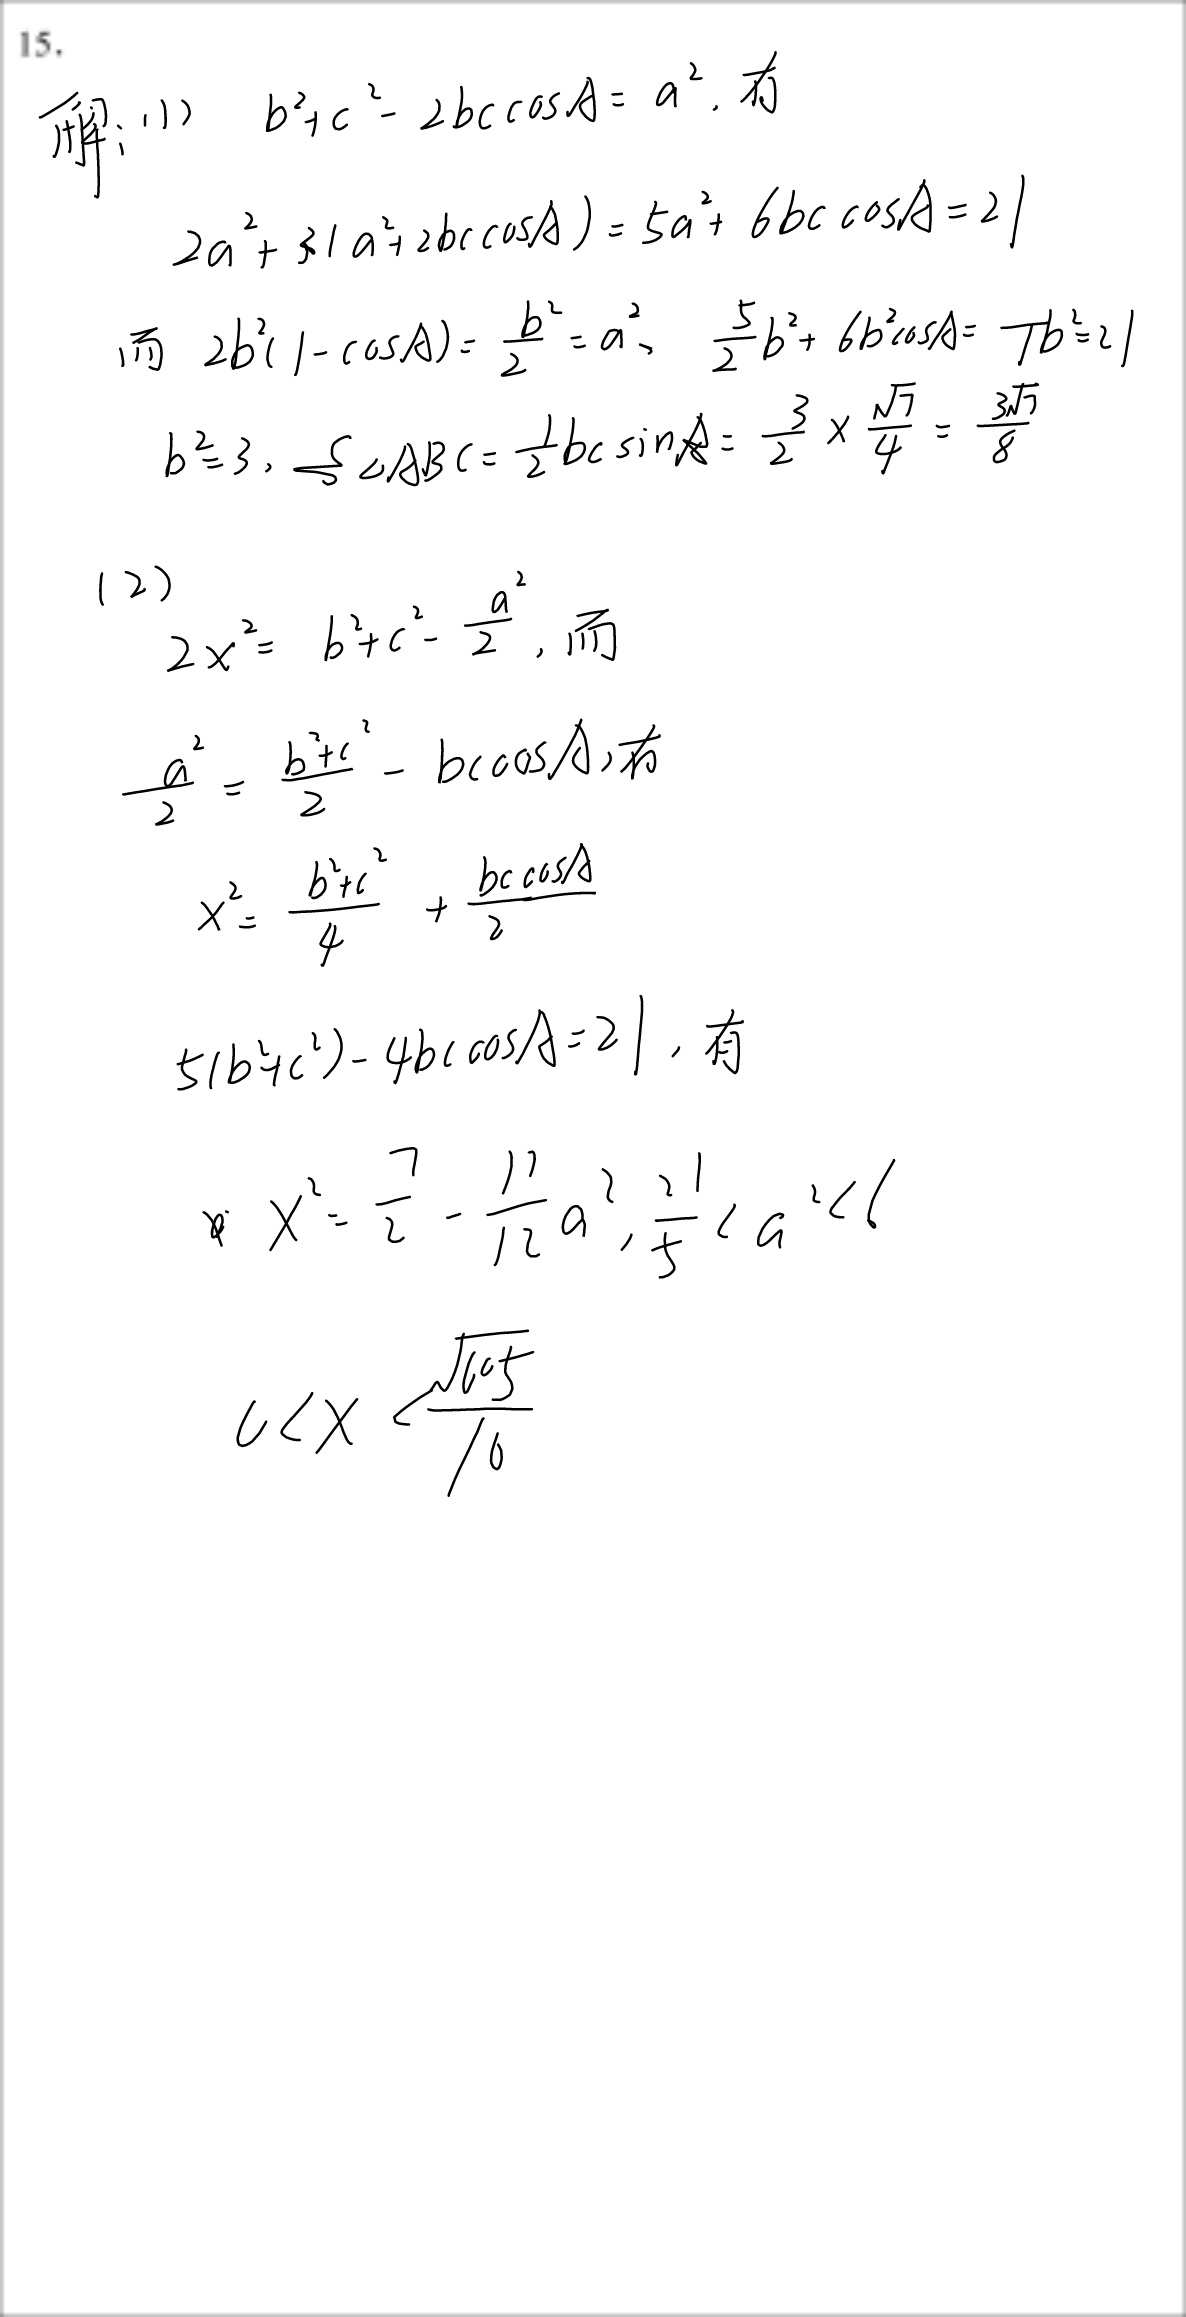 15.
解:(1) b²+c²-2bccosA=a².有
2a²+3(a²+2bccosA)=5a²+6bccosA=21
而 2b²(1-cosA)=b²/2=a²、 5/2b²+6b²cosA=7b²=21
b²=3. S△ABC=1/2bcsinA=3/2×√7/4=3√7/8
(2)
2x²=b²+c²-a²/2,而
a²/2=(b²+c²)/2-bccosA,有
x²=(b²+c²)/4+bccosA/2
5(b²+c²)-4bccosA=21,有
x²=7/2-17/12a²,21/5<a²<6
0<x<√105/10